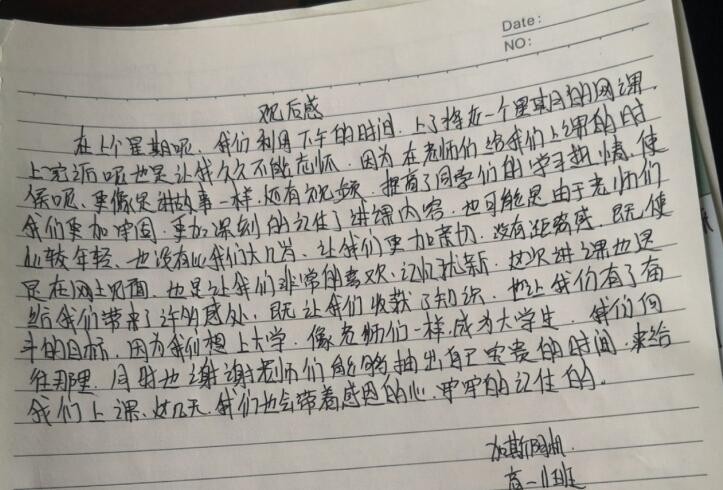 Date:
NO:
观后感
在上个星期呢，我们利用下午的时间，上了将近一个星期的网课，
上完之后呢也是让我久久不能忘怀，因为在老师们给我们上课的时
候呢，更像是讲故事一样，还有视频，提高了同学们的学习热情，使
我们更加牢固，更加深刻的记住了讲课内容，也可能是由于老师们
比较年轻，也没有比我们大几岁，让我们更加亲切，没有距离感，既使
是在网上见面，也是让我们非常的喜欢，记忆犹新，这次讲课也是
给我们带来了许多感处，既让我们收获了知识，也让我们有了奋
斗的目标，因为我们想上大学，像老师们一样，成为大学生，我们向
往那里，同时也谢谢老师们能够抽出自己宝贵的时间，来给
我们上课，这几天，我们也会带着感恩的心，牢牢的记住的。
加斯
高一11班